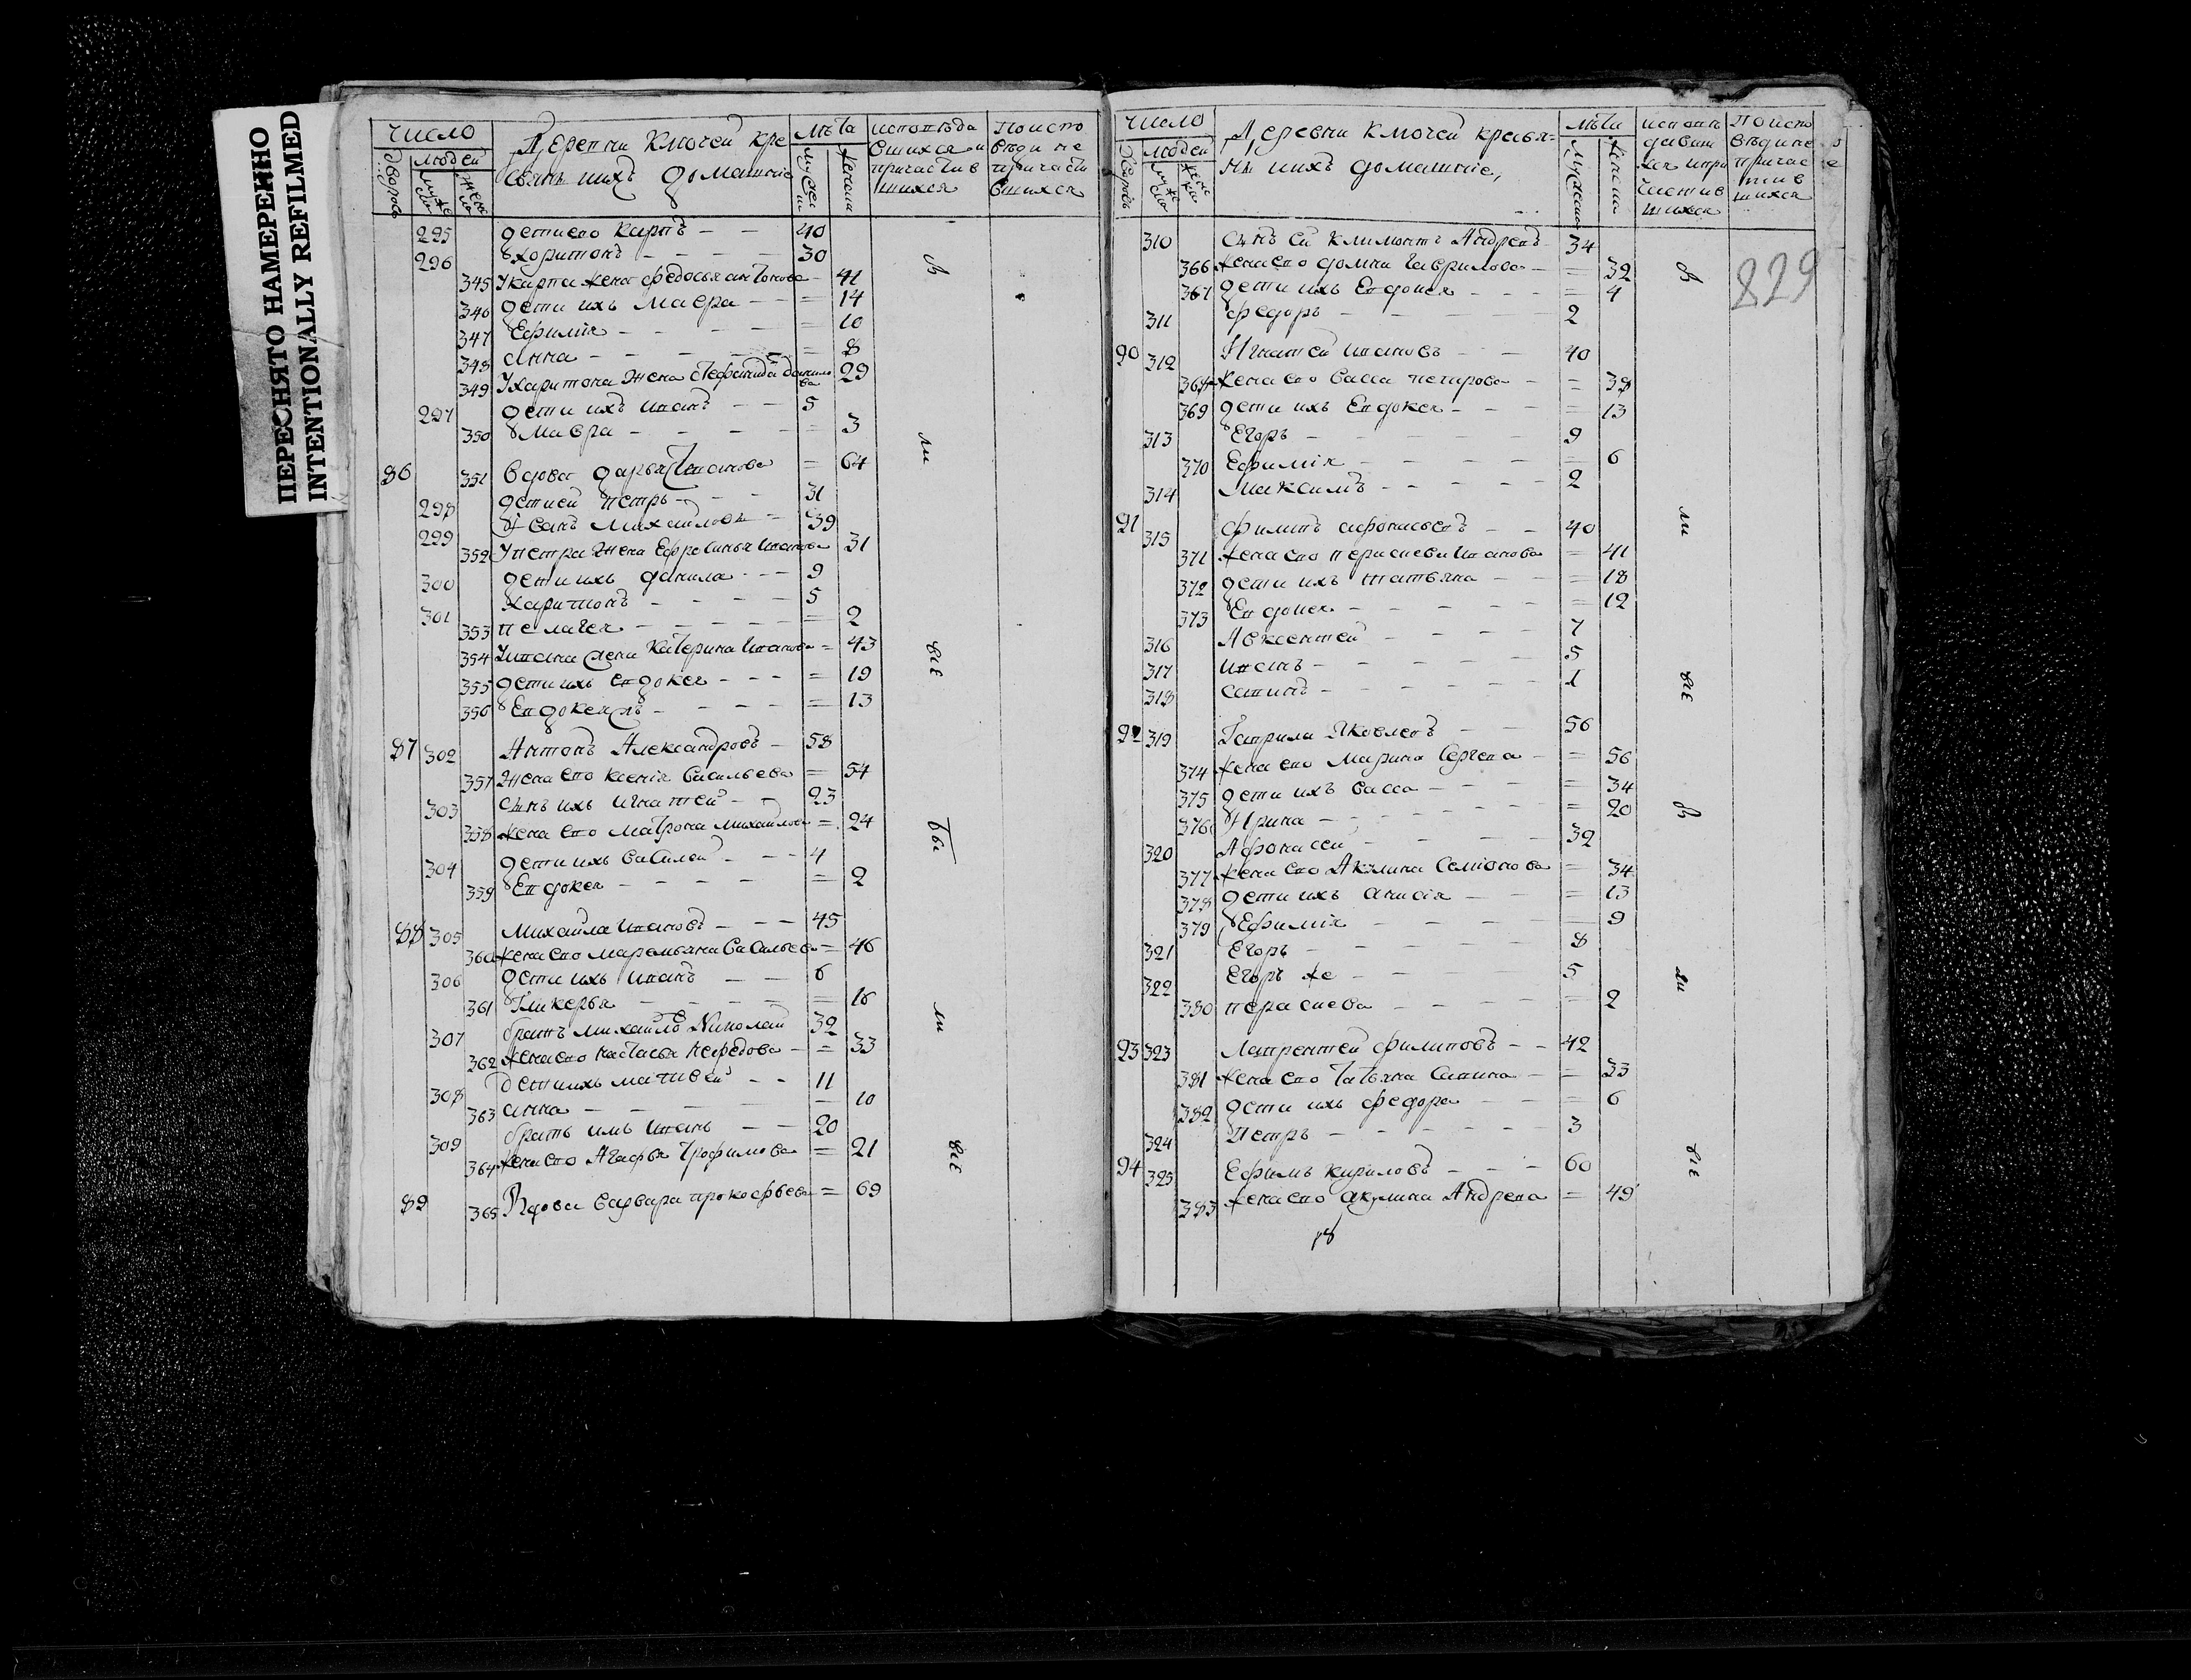 ПЕРЕСНЯТО НАМЕРЕННО
INTENTIONALLY REFILMED
число
людей
Деревни Ключей кре
стьянъ ихъ домашние
лѣта
мужеска
женска
исповѣда
вшихся и
причастив
шихся
по испо
вѣди не
причасти
вшихся
295 дети его Карпъ — — 40
296 Харитонъ — — — — 30
345 У карпа жена федосья антонова — 41
346 дети ихъ Мавра — — = 14
347 Ефимия — — — — = 10
348 анна — — — — = 8
349 У харитона жена Стефанида данило
ва 29
297 дети ихъ иванъ — — 5
350 Мавра — — — — = 3
86 351 вдова дарья Иванова = 64
298 дети ей петръ — — — 31
299 Иванъ Михайловъ — 39
352 У петра жена Ефросинья иванова 31
300 дети ихъ данила — — — 9
301 харитонъ — — — — 5
353 пелагея — — — — = 2
354 У ивана жена Катерина Иванова = 43
355 дети ихъ евдокея — — — = 19
356 Евдокея — — — — = 13
87 302 Антонъ Александровъ — 58
357 Жена его ксения васильева = 54
303 сынъ ихъ игнатей — — 23
358 жена его Матрона михайлова = 24
304 дети ихъ василей — — — 4
359 Евдокея — — — — = 2
88 305 михайла ивановъ — — — 45
360 жена его маремьяна васильева = 46
306 дети ихъ иванъ — — 6
361 Гликерья — — — — = 16
307 братъ михайлѣ Николай 32
362 жена его настасья нефедова — = 33
308 дети ихъ матвей — — 11
363 анна — — — — — 10
309 братъ имъ иванъ — — 20
364 жена его Агафья Трофимова = 21
89 365 Вдова варвара прокофьева = 69
вси были
были
число
людей
Деревни Ключей кресья=
нъ ихъ домашние,
лѣта
мужеска
женска
исповѣ
давши
хся и при
частив
шихся
По испо
вѣди не
причас
тив
шихся
829
310 сынъ ей климонтъ Андреевъ 34
366 жена его домна гаврилова — = 32
367 дети ихъ Евдокея — — — = 4
311 федоръ — — — — 2
90 312 Игнатей ивановъ — — 40
368 жена его васса петрова — = 38
369 дети ихъ Евдокея — — — = 13
313 Егоръ — — — — 9
370 Ефимия — — — — = 6
314 Максимъ — — — — 2
91 315 филипъ афонасьевъ — — 40
371 жена его параскева иванова = 41
372 дети ихъ татьяна — — = 18
373 Евдокея — — — — = 12
316 Авксентей — — — 7
317 иванъ — — — — 5
318 савинъ — — — — 1
92 319 Гаврила Яковлевъ — — 56
374 жена его Марина Сергеева — = 56
375 дети ихъ васса — — — = 34
376 Ирина — — — — = 20
320 Афонасей — — — — 32
377 жена его Акилина Семионова = 34
378 дети ихъ анисия — — = 13
379 Ефимия — — — — = 9
321 Егоръ — — — — 8
322 Егоръ же — — — — 5
380 параскева — — — — = 2
93 323 Лаврентей филиповъ — — 42
381 жена его татьяна савина — = 33
382 дети ихъ федора — — = 6
324 Петръ — — — — 3
94 325 Ефимъ кириловъ — — — 60
383 жена его акулина Андреева = 49